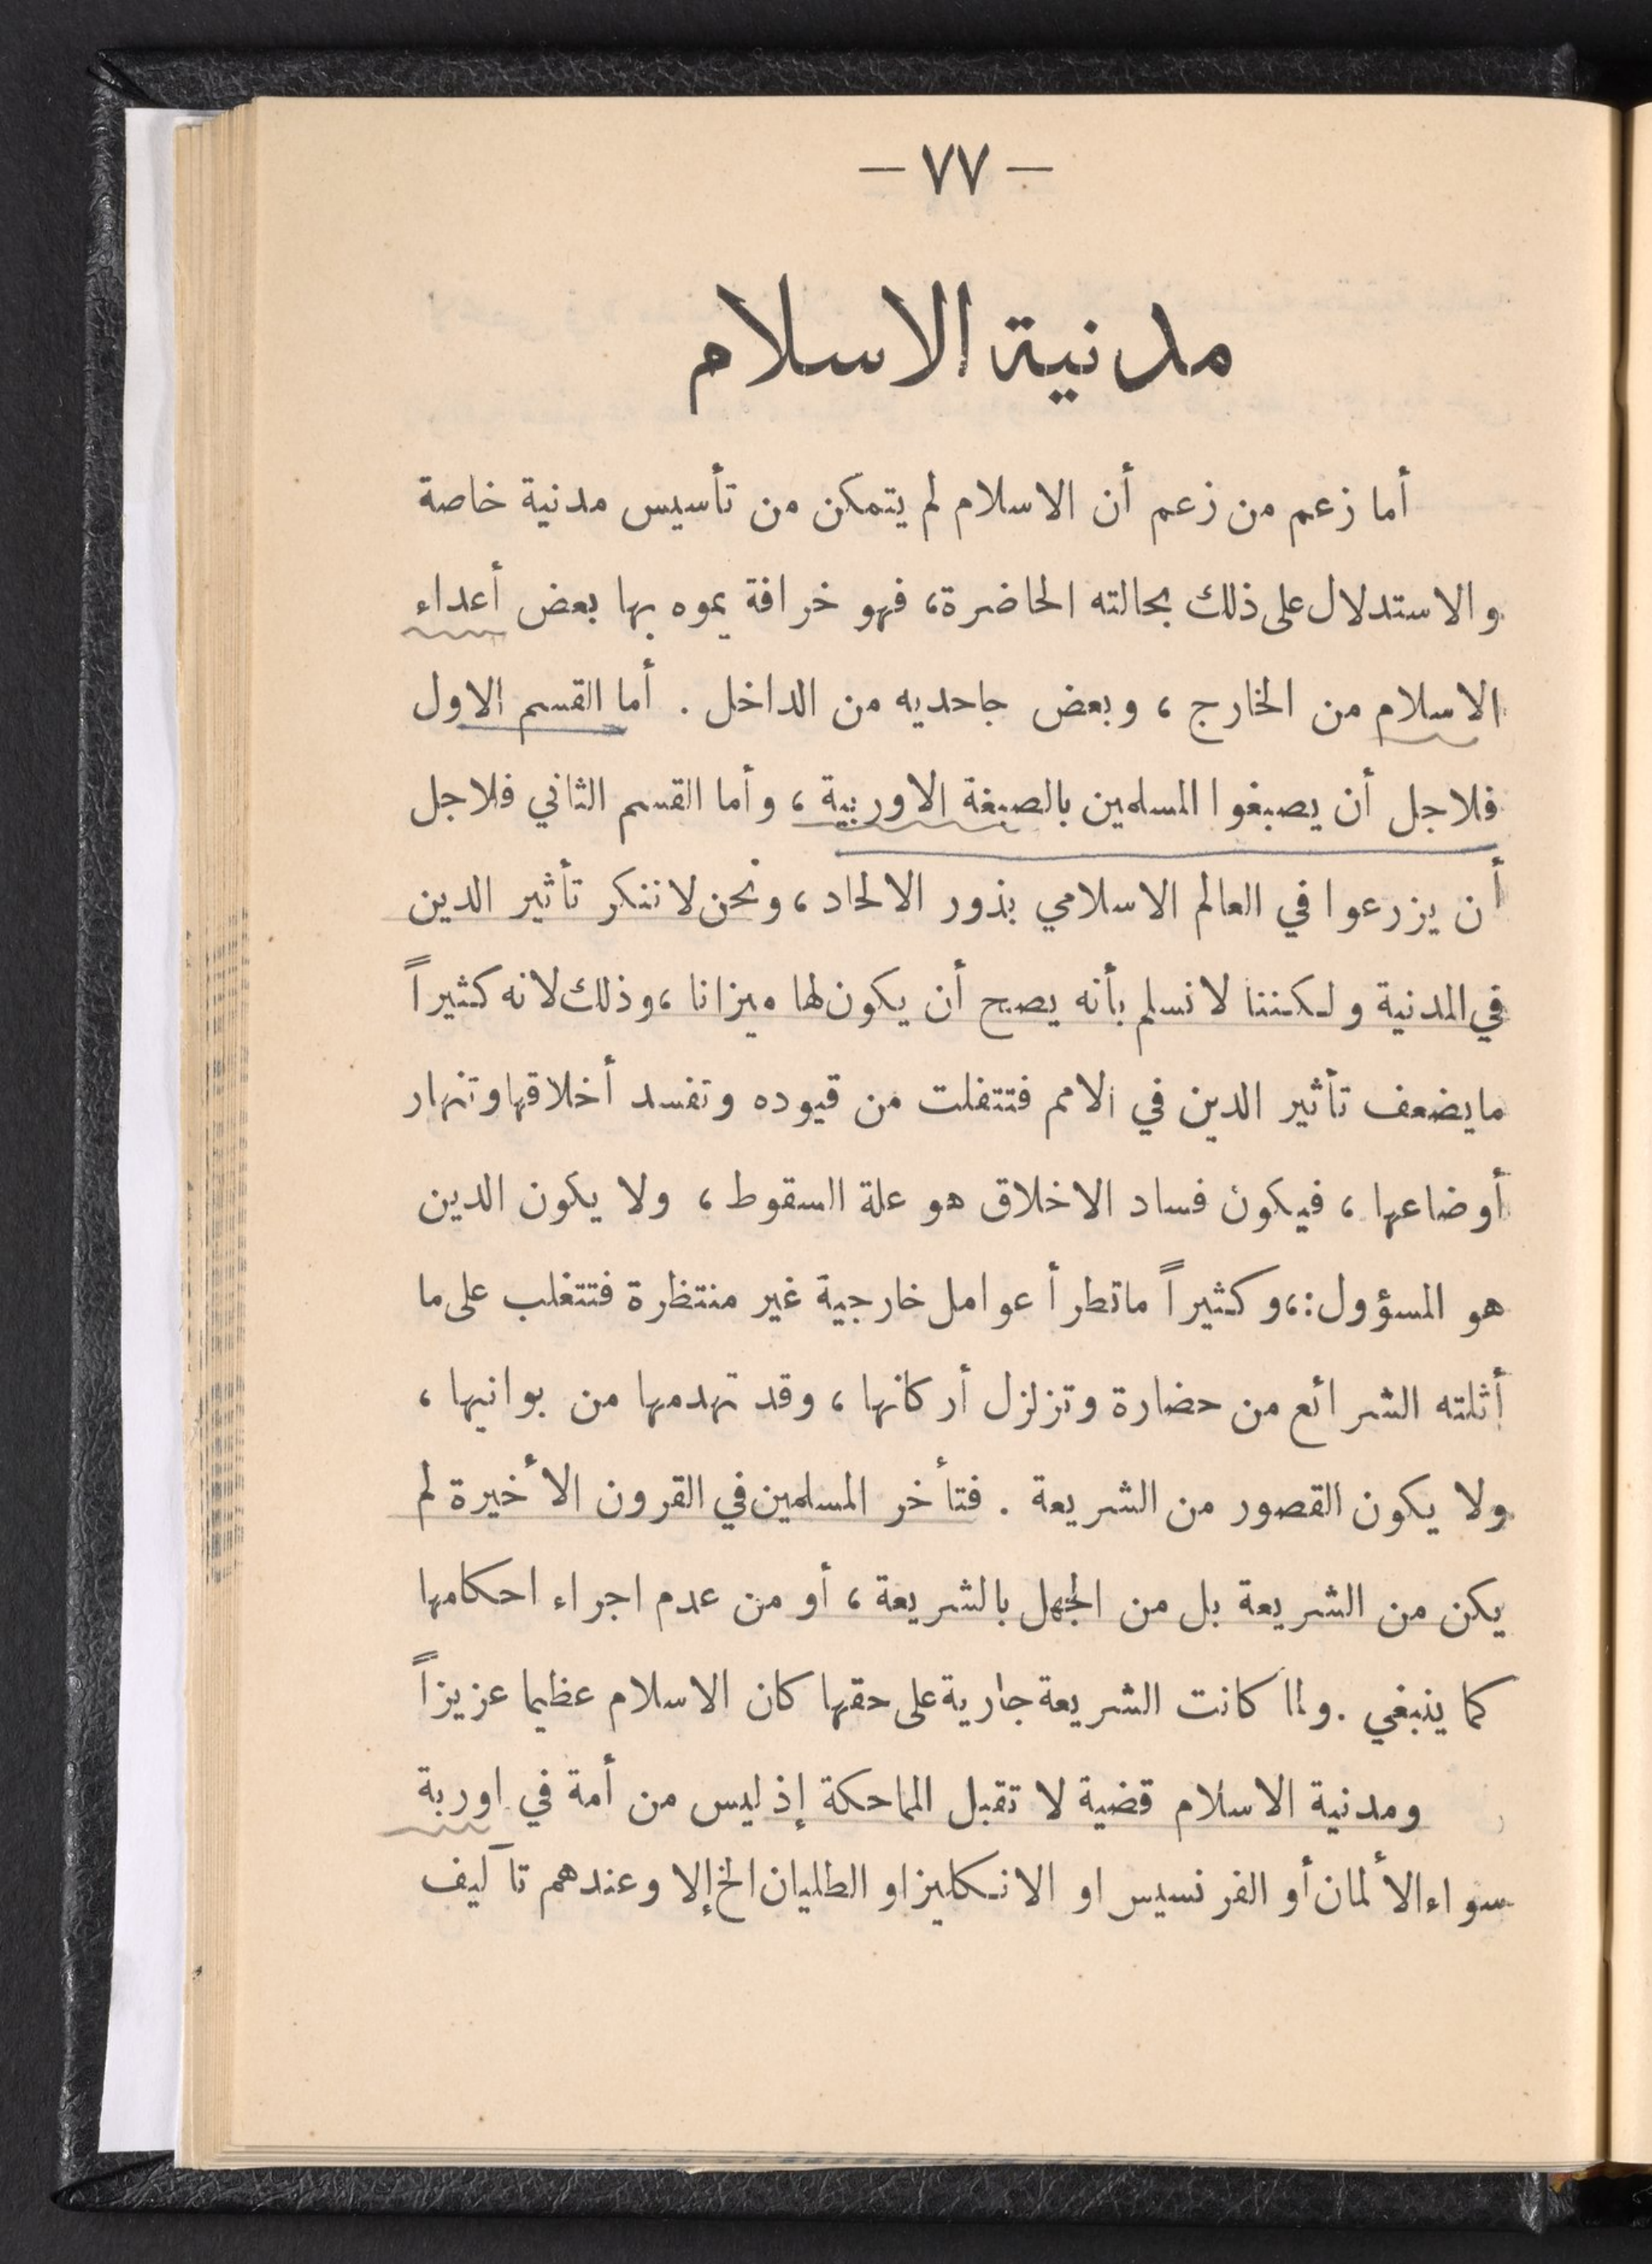 — ٧٧ —
مدنية الاسلام
أما زعم من زعم أن الاسلام لم يتمكن من تأسيس مدنية خاصة
والاستدلال على ذلك بحالته الحاضرة، فهو خرافة يموه بها بعض أعداء
الاسلام من الخارج ، وبعض جاحديه من الداخل . أما القسم الاول
فلاجل أن يصبغوا المسلمين بالصبغة الاوربية ، وأما القسم الثاني فلاجل
أن يزرعوا في العالم الاسلامي بذور الالحاد ، ونحن لا ننكر تأثير الدين
في المدنية ولكننا لا نسلم بأنه يصح أن يكون لها ميزانا ، وذلك لانه كثيراً
ما يضعف تأثير الدين في الامم فتتفلت من قيوده وتفسد أخلاقها وتنهار
أوضاعها ، فيكون فساد الاخلاق هو علة السقوط ، ولا يكون الدين
هو المسؤول :، وكثيراً ما تطرأ عوامل خارجية غير منتظرة فتتغلب على ما
أثلته الشرائع من حضارة وتزلزل أركانها ، وقد تهدمها من بوانيها ،
ولا يكون القصور من الشريعة . فتأخر المسلمين في القرون الأخيرة لم
يكن من الشريعة بل من الجهل بالشريعة ، أو من عدم اجراء احكامها
كما ينبغي . ولما كانت الشريعة جارية على حقها كان الاسلام عظيما عزيزاً
ومدنية الاسلام قضية لا تقبل المماحكة إذ ليس من أمة في اوربة
سواء الألمان أو الفرنسيس او الانكليز او الطليان الخ إلا وعندهم تآليف